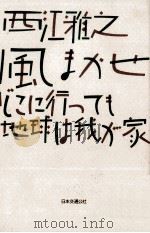 西江雅之
風まかせ
どこに行っても
地球は我が家
日本交通公社
www.mtoou.info